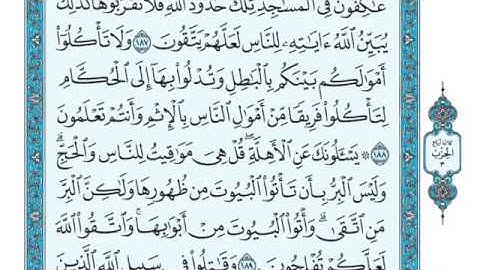 عَٰكِفُونَ فِي ٱلْمَسَٰجِدِ تِلْكَ حُدُودُ ٱللَّهِ فَلَا تَقْرَبُوهَا كَذَٰلِكَ
يُبَيِّنُ ٱللَّهُ ءَايَٰتِهِۦ لِلنَّاسِ لَعَلَّهُمْ يَتَّقُونَ ١٨٧ وَلَا تَأْكُلُوٓا۟
أَمْوَٰلَكُم بَيْنَكُم بِٱلْبَٰطِلِ وَتُدْلُوا۟ بِهَآ إِلَى ٱلْحُكَّامِ
لِتَأْكُلُوا۟ فَرِيقًا مِّنْ أَمْوَٰلِ ٱلنَّاسِ بِٱلْإِثْمِ وَأَنتُمْ تَعْلَمُونَ
١٨٨ ۞ يَسْـَٔلُونَكَ عَنِ ٱلْأَهِلَّةِ ۖ قُلْ هِيَ مَوَٰقِيتُ لِلنَّاسِ وَٱلْحَجِّ ۗ
وَلَيْسَ ٱلْبِرُّ بِأَن تَأْتُوا۟ ٱلْبُيُوتَ مِن ظُهُورِهَا وَلَٰكِنَّ ٱلْبِرَّ
مَنِ ٱتَّقَىٰ ۗ وَأْتُوا۟ ٱلْبُيُوتَ مِنْ أَبْوَٰبِهَا ۚ وَٱتَّقُوا۟ ٱللَّهَ
لَعَلَّكُمْ تُفْلِحُونَ ١٨٩ وَقَٰتِلُوا۟ فِي سَبِيلِ ٱللَّهِ ٱلَّذِينَ
الحزب
٣